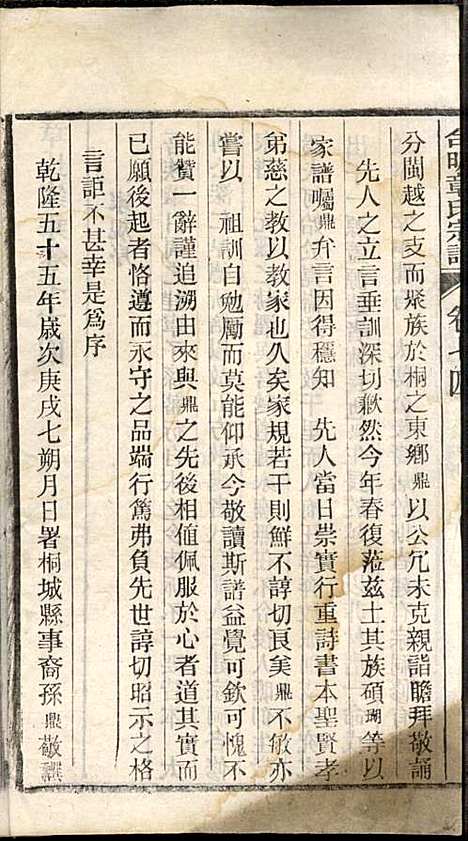 分閩越之支而聚族於桐之東鄉鼎以公冗未克親詣瞻拜敬誦
先人之立言垂訓深切歉然今年春復蒞茲土其族碩瑚等以
家譜囑鼎弁言因得穩知 先人當日崇實行重詩書本聖賢孝
弟慈之教以教家也久矣家規若干則鮮不諄切艮美鼎不敏亦
嘗以 祖訓自勉勵而莫能仰承今敬讀斯譜益覺可欽可愧不
能贊一辭謹追溯由來與鼎之先後相值佩服於心者道其實而
已願後起者恪遵而永守之品端行篤弗負先世諄切昭示之格
言詎不甚幸是為序
乾隆五十五年歲次庚戌七朔月日署桐城縣事裔孫鼎敬譔
章氏宗譜 卷十四